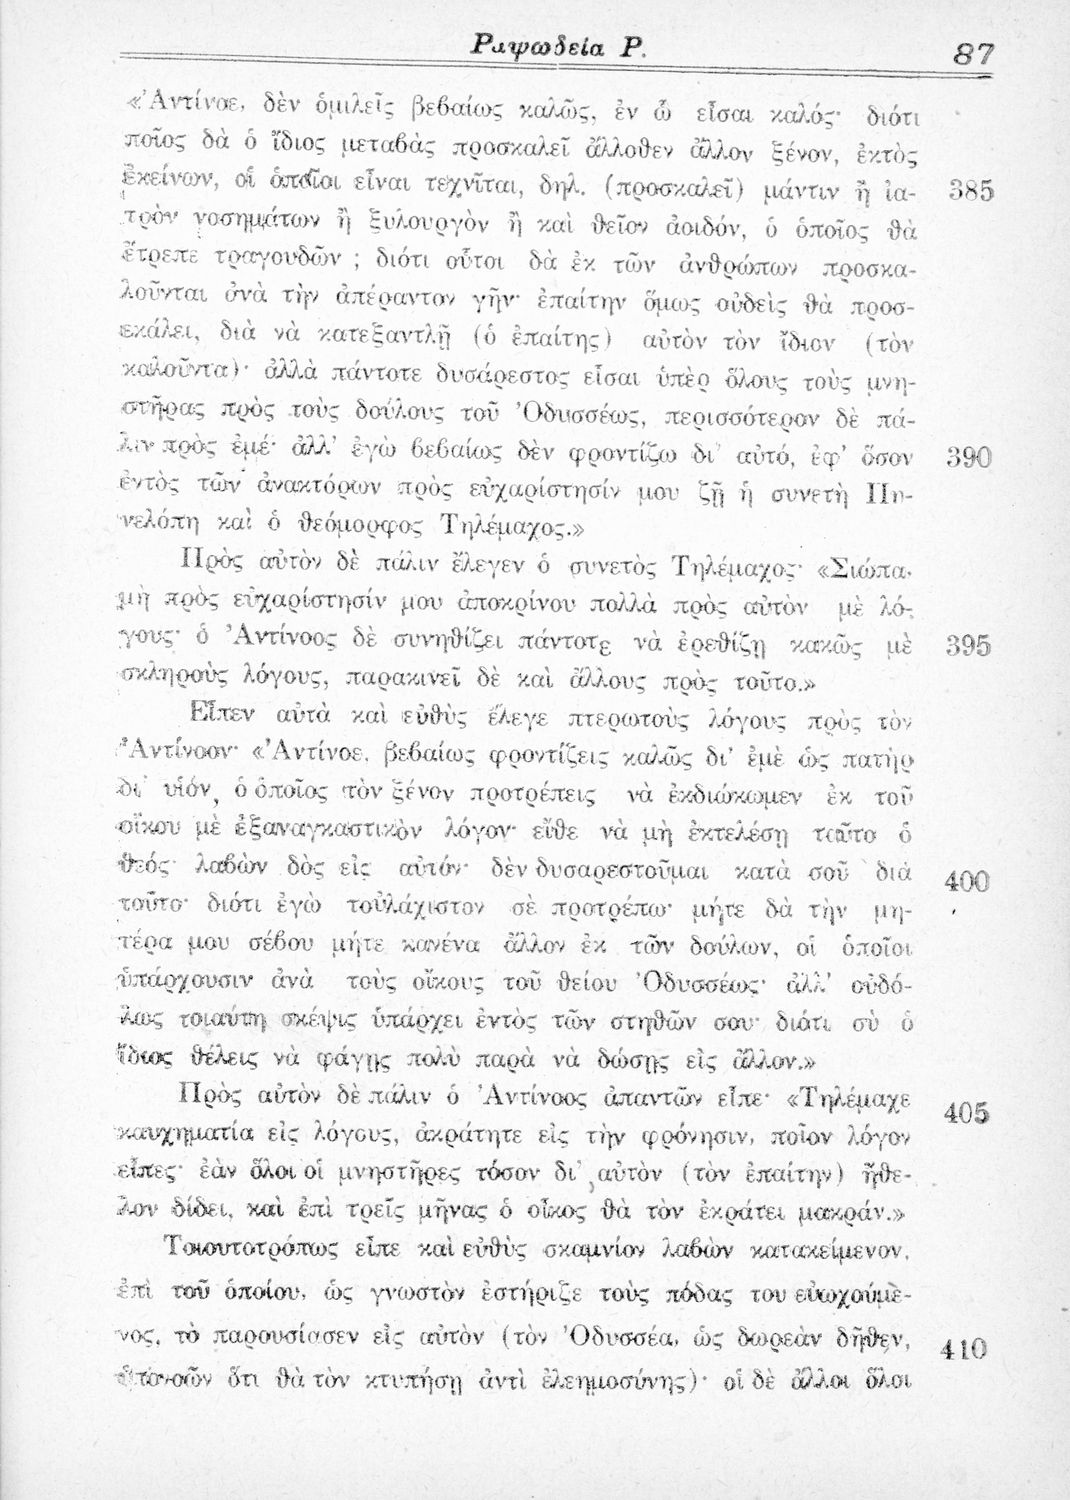 Ραψωδεία Ρ.
87
«Ἀντίνοε, δὲν ὁμιλεῖς βεβαίως καλῶς, ἐν ᾧ εἶσαι καλός· διότι
ποῖος δὰ ὁ ἴδιος μεταβὰς προσκαλεῖ ἄλλοθεν ἄλλον ξένον, ἐκτὸς
ἐκείνων, οἱ ὁποῖοι εἶναι τεχνῖται, δηλ. (προσκαλεῖ) μάντιν ἢ ἰα-
385
τρὸν νοσημάτων ἢ ξυλουργὸν ἢ καὶ θεῖον ἀοιδόν, ὁ ὁποῖος θὰ
ἔτρεπε τραγουδῶν ; διότι οὗτοι δὰ ἐκ τῶν ἀνθρώπων προσκα-
λοῦνται ἀνὰ τὴν ἀπέραντον γῆν· ἐπαίτην ὅμως οὐδεὶς θὰ προσ-
εκάλει, διὰ νὰ κατεξαντλῇ (ὁ ἐπαίτης) αὐτὸν τὸν ἴδιον (τὸν
καλοῦντα)· ἀλλὰ πάντοτε δυσάρεστος εἶσαι ὑπὲρ ὅλους τοὺς μνη-
στῆρας πρὸς τοὺς δούλους τοῦ Ὀδυσσέως, περισσότερον δὲ πά-
λιν πρὸς ἐμέ· ἀλλ' ἐγὼ βεβαίως δὲν φροντίζω δι' αὐτό, ἐφ' ὅσον
390
ἐντὸς τῶν ἀνακτόρων πρὸς εὐχαρίστησίν μου ζῇ ἡ συνετὴ Πη-
νελόπη καὶ ὁ θεόμορφος Τηλέμαχος.»
Πρὸς αὐτὸν δὲ πάλιν ἔλεγεν ὁ συνετὸς Τηλέμαχος· «Σιώπα·
μὴ πρὸς εὐχαρίστησίν μου ἀποκρίνου πολλὰ πρὸς αὐτὸν μὲ λό-
γους· ὁ Ἀντίνοος δὲ συνηθίζει πάντοτε νὰ ἐρεθίζῃ κακῶς μὲ
395
σκληροὺς λόγους, παρακινεῖ δὲ καὶ ἄλλους πρὸς τοῦτο.»
Εἶπεν αὐτὰ καὶ εὐθὺς ἔλεγε πτερωτοὺς λόγους πρὸς τὸν
Ἀντίνοον· «Ἀντίνοε, βεβαίως φροντίζεις καλῶς δι' ἐμὲ ὡς πατὴρ
δι' υἱόν, ὁ ὁποῖος τὸν ξένον προτρέπεις νὰ ἐκδιώκωμεν ἐκ τοῦ
οἴκου μὲ ἐξαναγκαστικὸν λόγον· εἴθε νὰ μὴ ἐκτελέσῃ τοῦτο ὁ
θεός· λαβὼν δὸς εἰς αὐτόν· δὲν δυσαρεστοῦμαι κατὰ σοῦ διὰ
400
τοῦτο· διότι ἐγὼ τοὐλάχιστον σὲ προτρέπω· μήτε δὰ τὴν μη-
τέρα μου σέβου μήτε κανένα ἄλλον ἐκ τῶν δούλων, οἱ ὁποῖοι
ὑπάρχουσιν ἀνὰ τοὺς οἴκους τοῦ θείου Ὀδυσσέως· ἀλλ' οὐδό-
λως τοιαύτη σκέψις ὑπάρχει ἐντὸς τῶν στηθῶν σου· διότι σὺ ὁ
ἴδιος θέλεις νὰ φάγῃς πολὺ παρὰ νὰ δώσῃς εἰς ἄλλον.»
Πρὸς αὐτὸν δὲ πάλιν ὁ Ἀντίνοος ἀπαντῶν εἶπε· «Τηλέμαχε
405
καυχηματία εἰς λόγους, ἀκράτητε εἰς τὴν φρόνησιν, ποῖον λόγον
εἶπες· ἐὰν ὅλοι οἱ μνηστῆρες τόσον δι' αὐτὸν (τὸν ἐπαίτην) ἤθε-
λον δίδει, καὶ ἐπὶ τρεῖς μῆνας ὁ οἶκος θὰ τὸν ἐκράτει μακράν.»
Τοιουτοτρόπως εἶπε καὶ εὐθὺς σκαμνίον λαβὼν κατακείμενον,
ἐπὶ τοῦ ὁποίου, ὡς γνωστὸν ἐστήριξε τοὺς πόδας του εὐωχούμε-
νος, τὸ παρουσίασεν εἰς αὐτὸν (τὸν Ὀδυσσέα, ὡς δωρεὰν δῆθεν,
410
ὑπονοῶν ὅτι θὰ τὸν κτυπήσῃ ἀντὶ ἐλεημοσύνης)· οἱ δὲ ἄλλοι ὅλοι